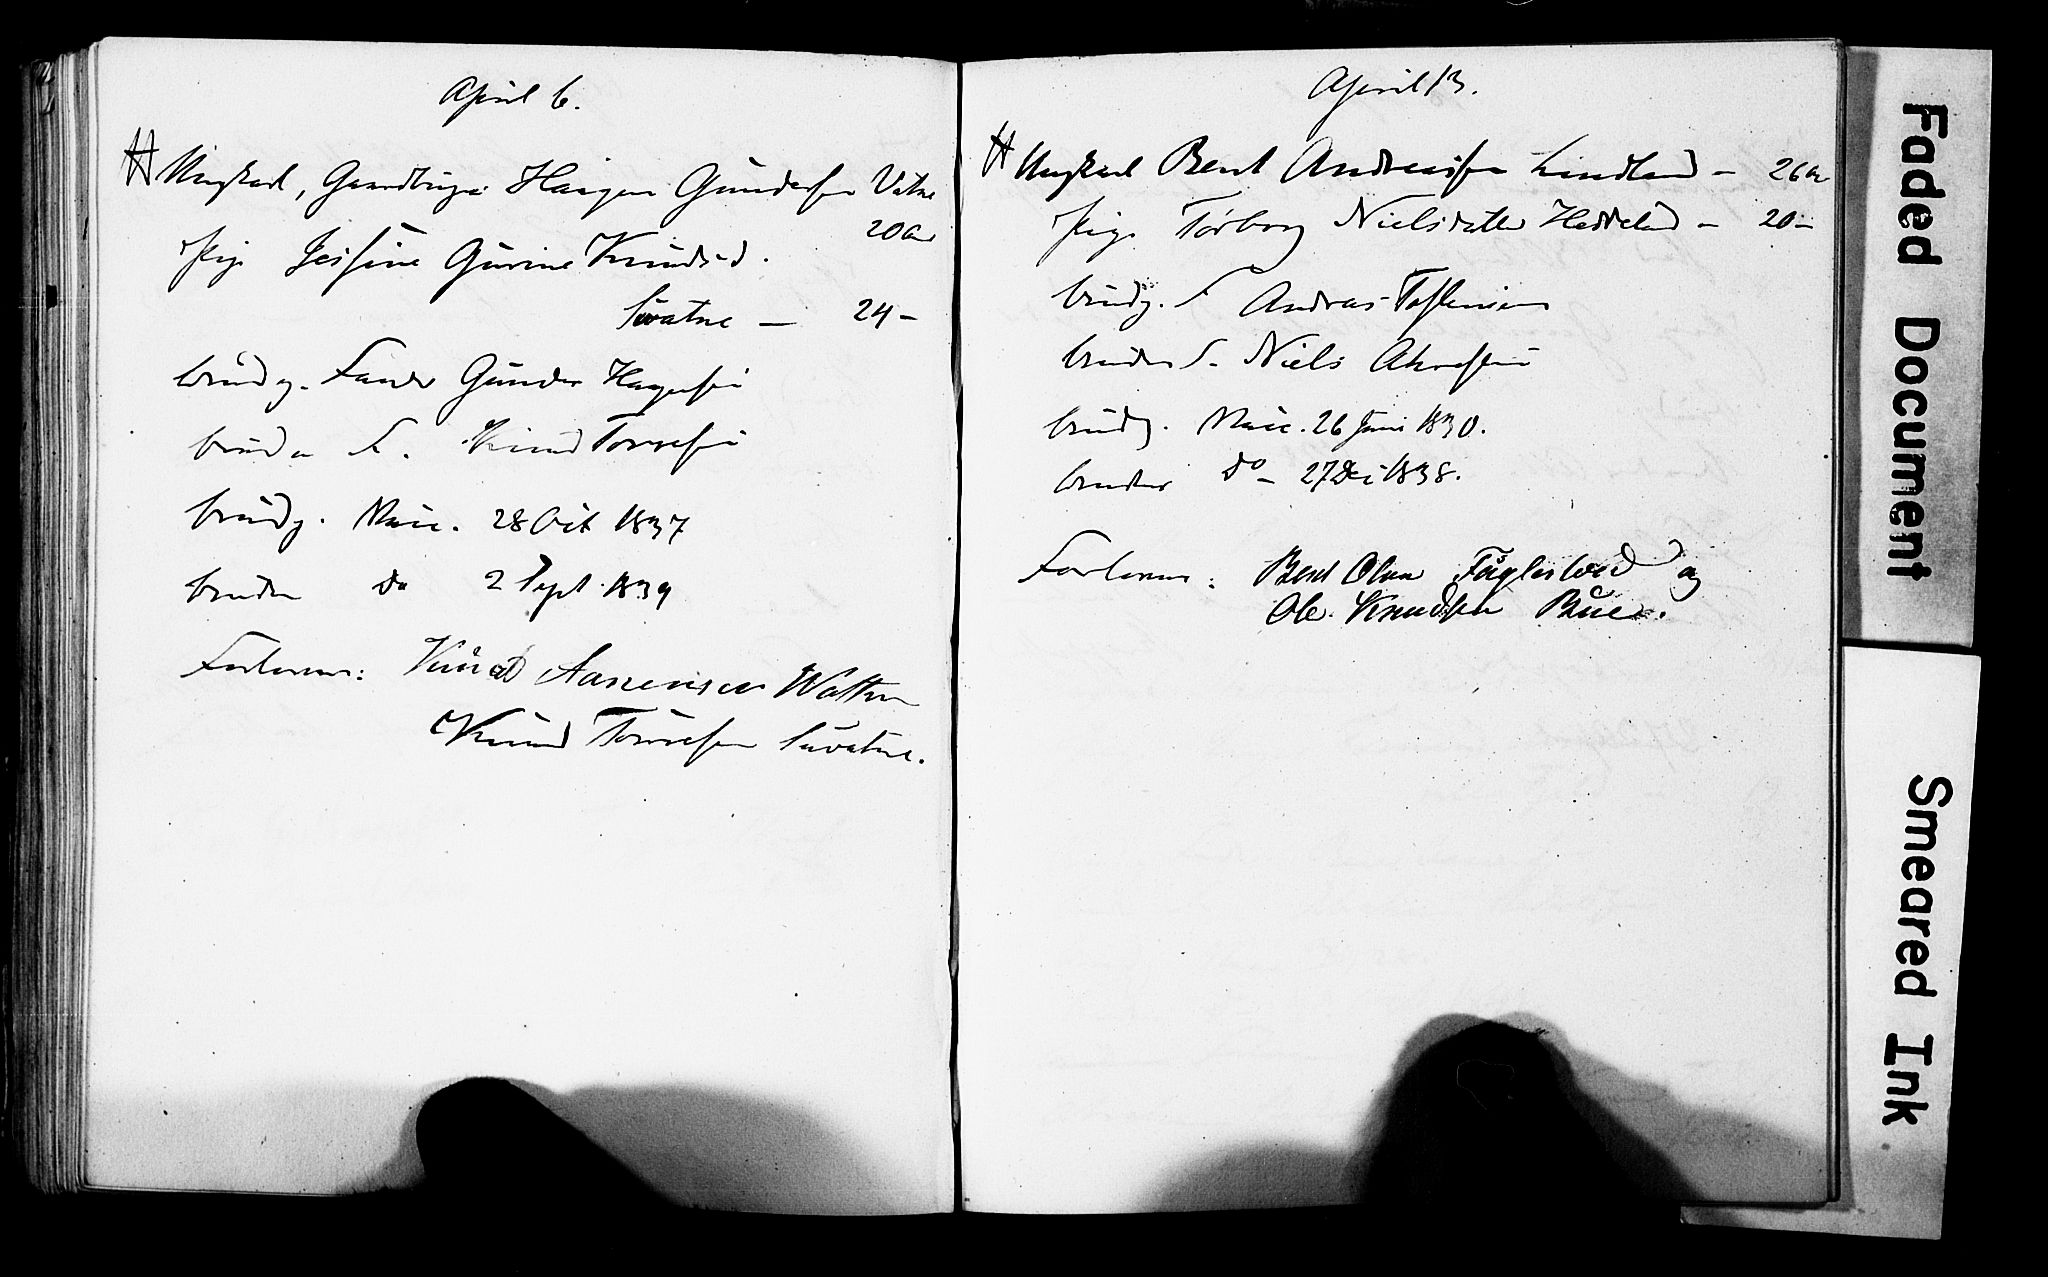 April 6.
Ungkarl, Gaardbruger Haagen Gundersen Vatne
20 Aar
Pige Jessine Gurine Knudsd.
Suvatne — 24 –
brudg. Fader Gunder Haagensen
brud F. Knud Torresen
brudg. Vacc. 28 Oct 1837
bruden do 2 Sept. 1839
Forlovere: Knud Aanensen Watne
Knud Torresen Suvatne.
April 13.
Ungkarl Bent Andreassen Lindland – 26 Aar
Pige Torborg Nielsdatter Heddeland – 20 –
brudg. F Andreas
brudens F. Niels
brudg. Vacc. 26 Juni 1830.
bruden do – 27 Dec 1838.
Forlovere: Bent Olsen Fuglestved og
Ole Knudsen Bue.
Faded Document
Smeared Ink